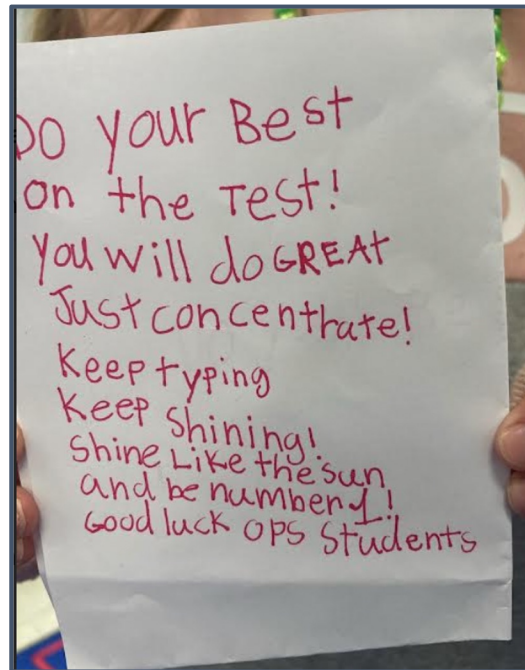 Do your Best
on the Test!
You will do GREAt
Just concentrate!
Keep typing
Keep Shining!
Shine Like the sun
and be number 1!
Good luck OPS Students